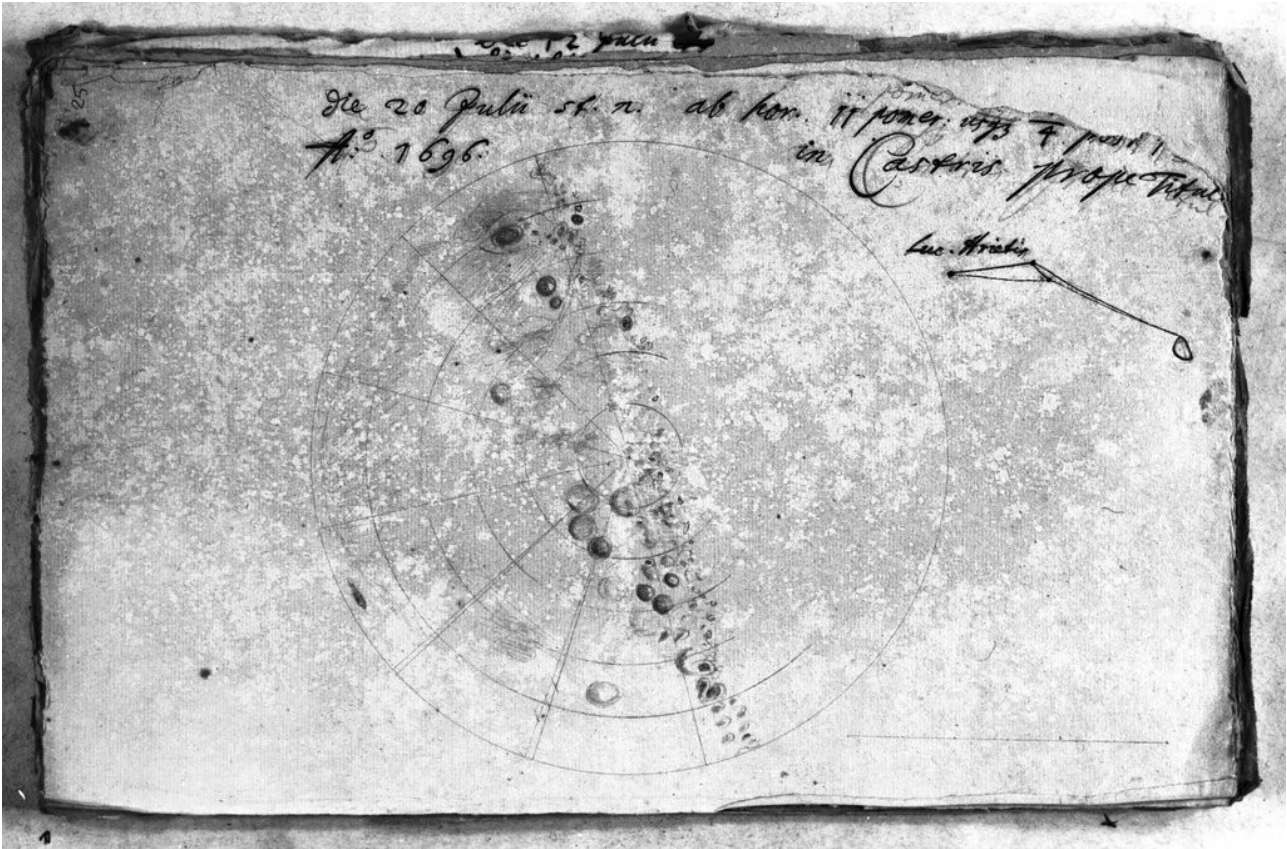 25
die 20 Julii st. n. ab hor. 11 pomer. usq3 4.
A.º 1696.
in Castris prope Titul
Luc. Arietis